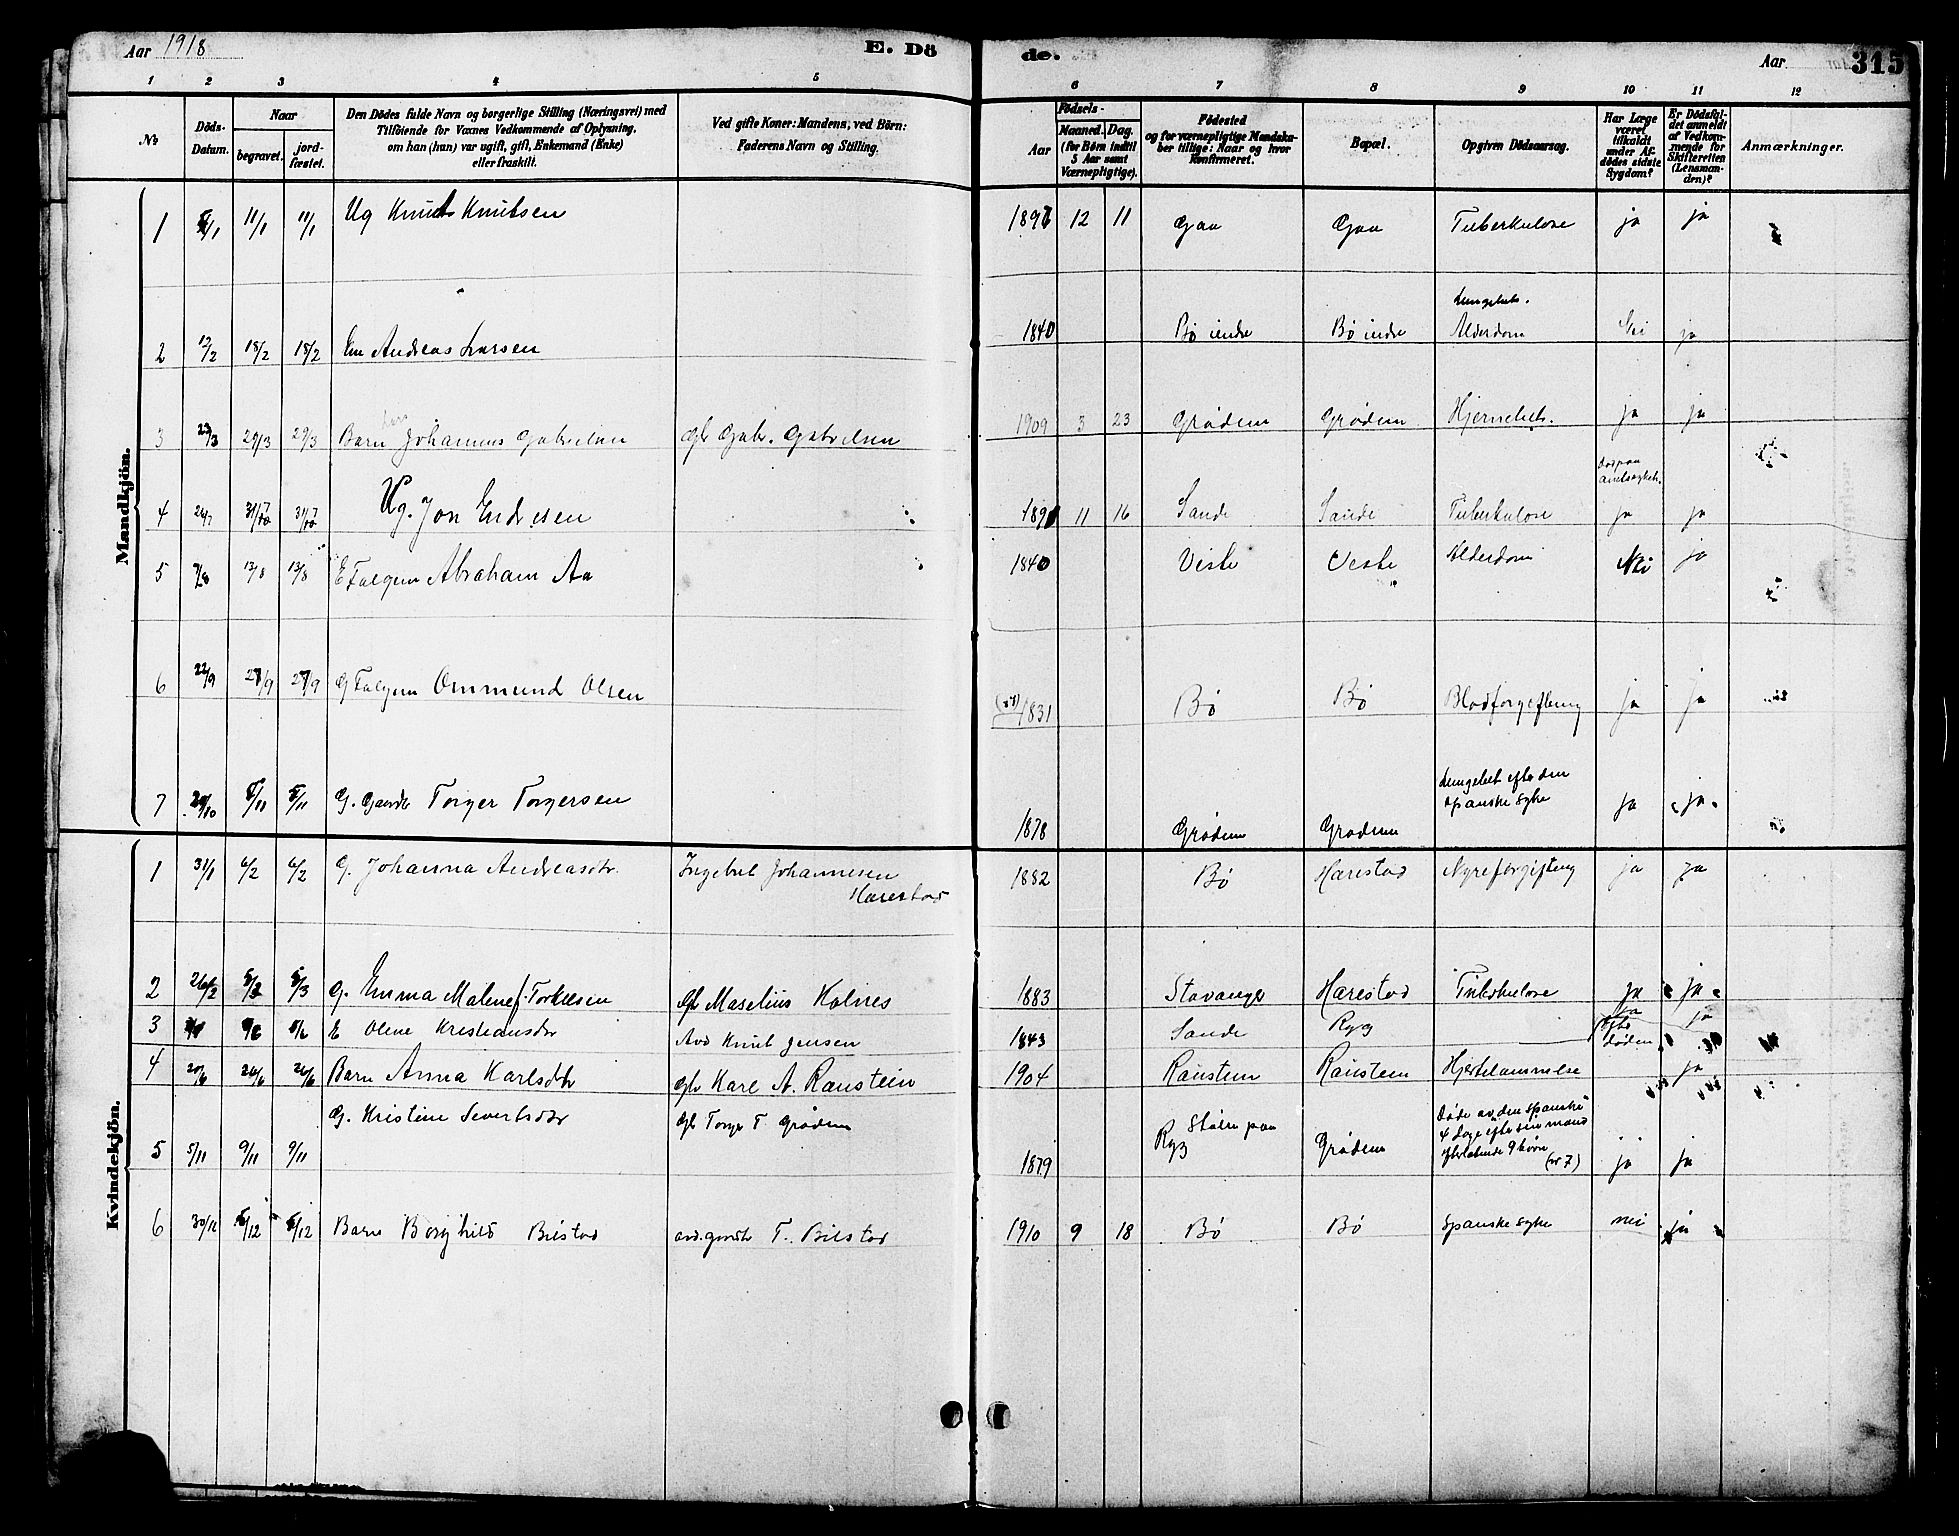 Aar 1918
E. Dö
de.
Aar
315
1 2 3 4 5 6 7 8 9 10 11 12
No
Döds-
Datum.
Naar
begravet.
jord-
fæstet.
Den Dödes fulde Navn og borgerlige Stilling (Næringsvei) med
Tilföiende for Voxnes Vedkommende af Oplysning,
om han (hun) var ugift, gift, Enkemand (Enke)
eller fraskilt.
Ved gifte Koner: Mandens, ved Börn:
Faderens Navn og Stilling.
Födsels-
Aar
Maaned. Dag.
(for Börn indtil
5 Aar samt
Værnepligtige).
Födested
og for værnepligtige Mandska-
ber tillige: Naar og hvor
Konfirmeret.
Bopæl.
Opgiven Dödsaarsag.
Har Læge
været
tilkaldt
under Af-
dödes sidste
Sygdom?
Er Dödsfal-
det anmeldt
af Vedkom-
mende for
Skifteretten
(Lensman-
den)?
Anmærkninger.
Mandkjön.
1 11/1 11/1 Ug Knut Knutsen 12 11 Gaa Gaa Tuberkulose ja ja
Lungebet.
2 12/2 18/2 18/2 Em Andreas Larsen 1840 Bø indre Bø indre Alderdom Nei ja
3 23/3 29/3 29/3 Barn Johannes Gabrielsen Gbr Gabr. Gabrielsen 1909 3 23 Grødem Grødem Hjernebet. ja ja
Død paa
amtssykeh.
4 Ug. Jon Endresen 11 16 Sande Sande Tuberkulose ja ja
5 13/8 13/8 E Folgem Abraham Aa 1840 Viste Viste Alderdom Nei ja
6 22/9 27/9 27/9 G Folgem Ommund Olsen 1831 Bø Bø Blodforgiftning ja ja
Lungebet efter den
spanske syke
7 G. Gaardb Torger Torgersen 1878 Grødem Grødem ja ja
Kvindekjön.
1 31/1 6/2 6/2 G. Johanna Andreasdtr. Ingebret Johannesen
Harestad 1882 Bø Harestad Nyreforgiftning ja ja
2 26/2 5/3 5/3 G. Emma Malene f. Torkelsen Gbr Maselius Kolnes 1883 Stavanger Harestad Tuberkulose ja ja
3 E Olene Kristiansdtr Avd Knut Jensen 1843 Sande Ryg ja
efter
døden ja
4 20/6 26/6 26/6 Barn Anna Karlsdtr Gbr Karl A. Raustein 1904 Raustein Raustein Hjertelammelse ja
G. Kristine Severtsdtr Gbr Torger T Grødem
5 5/11 9/11 9/11 1879 Ryg Grødem
Døde av den spanske
4 dage efter sin mand
efterladende 9 børn
(nr 7) ja ja
6 30/11 5/12 5/12 Barn Borghild Bilstad avd. gaardb T. Bilstad 1910 9 18 Bø Bø Spanske syke nei ja